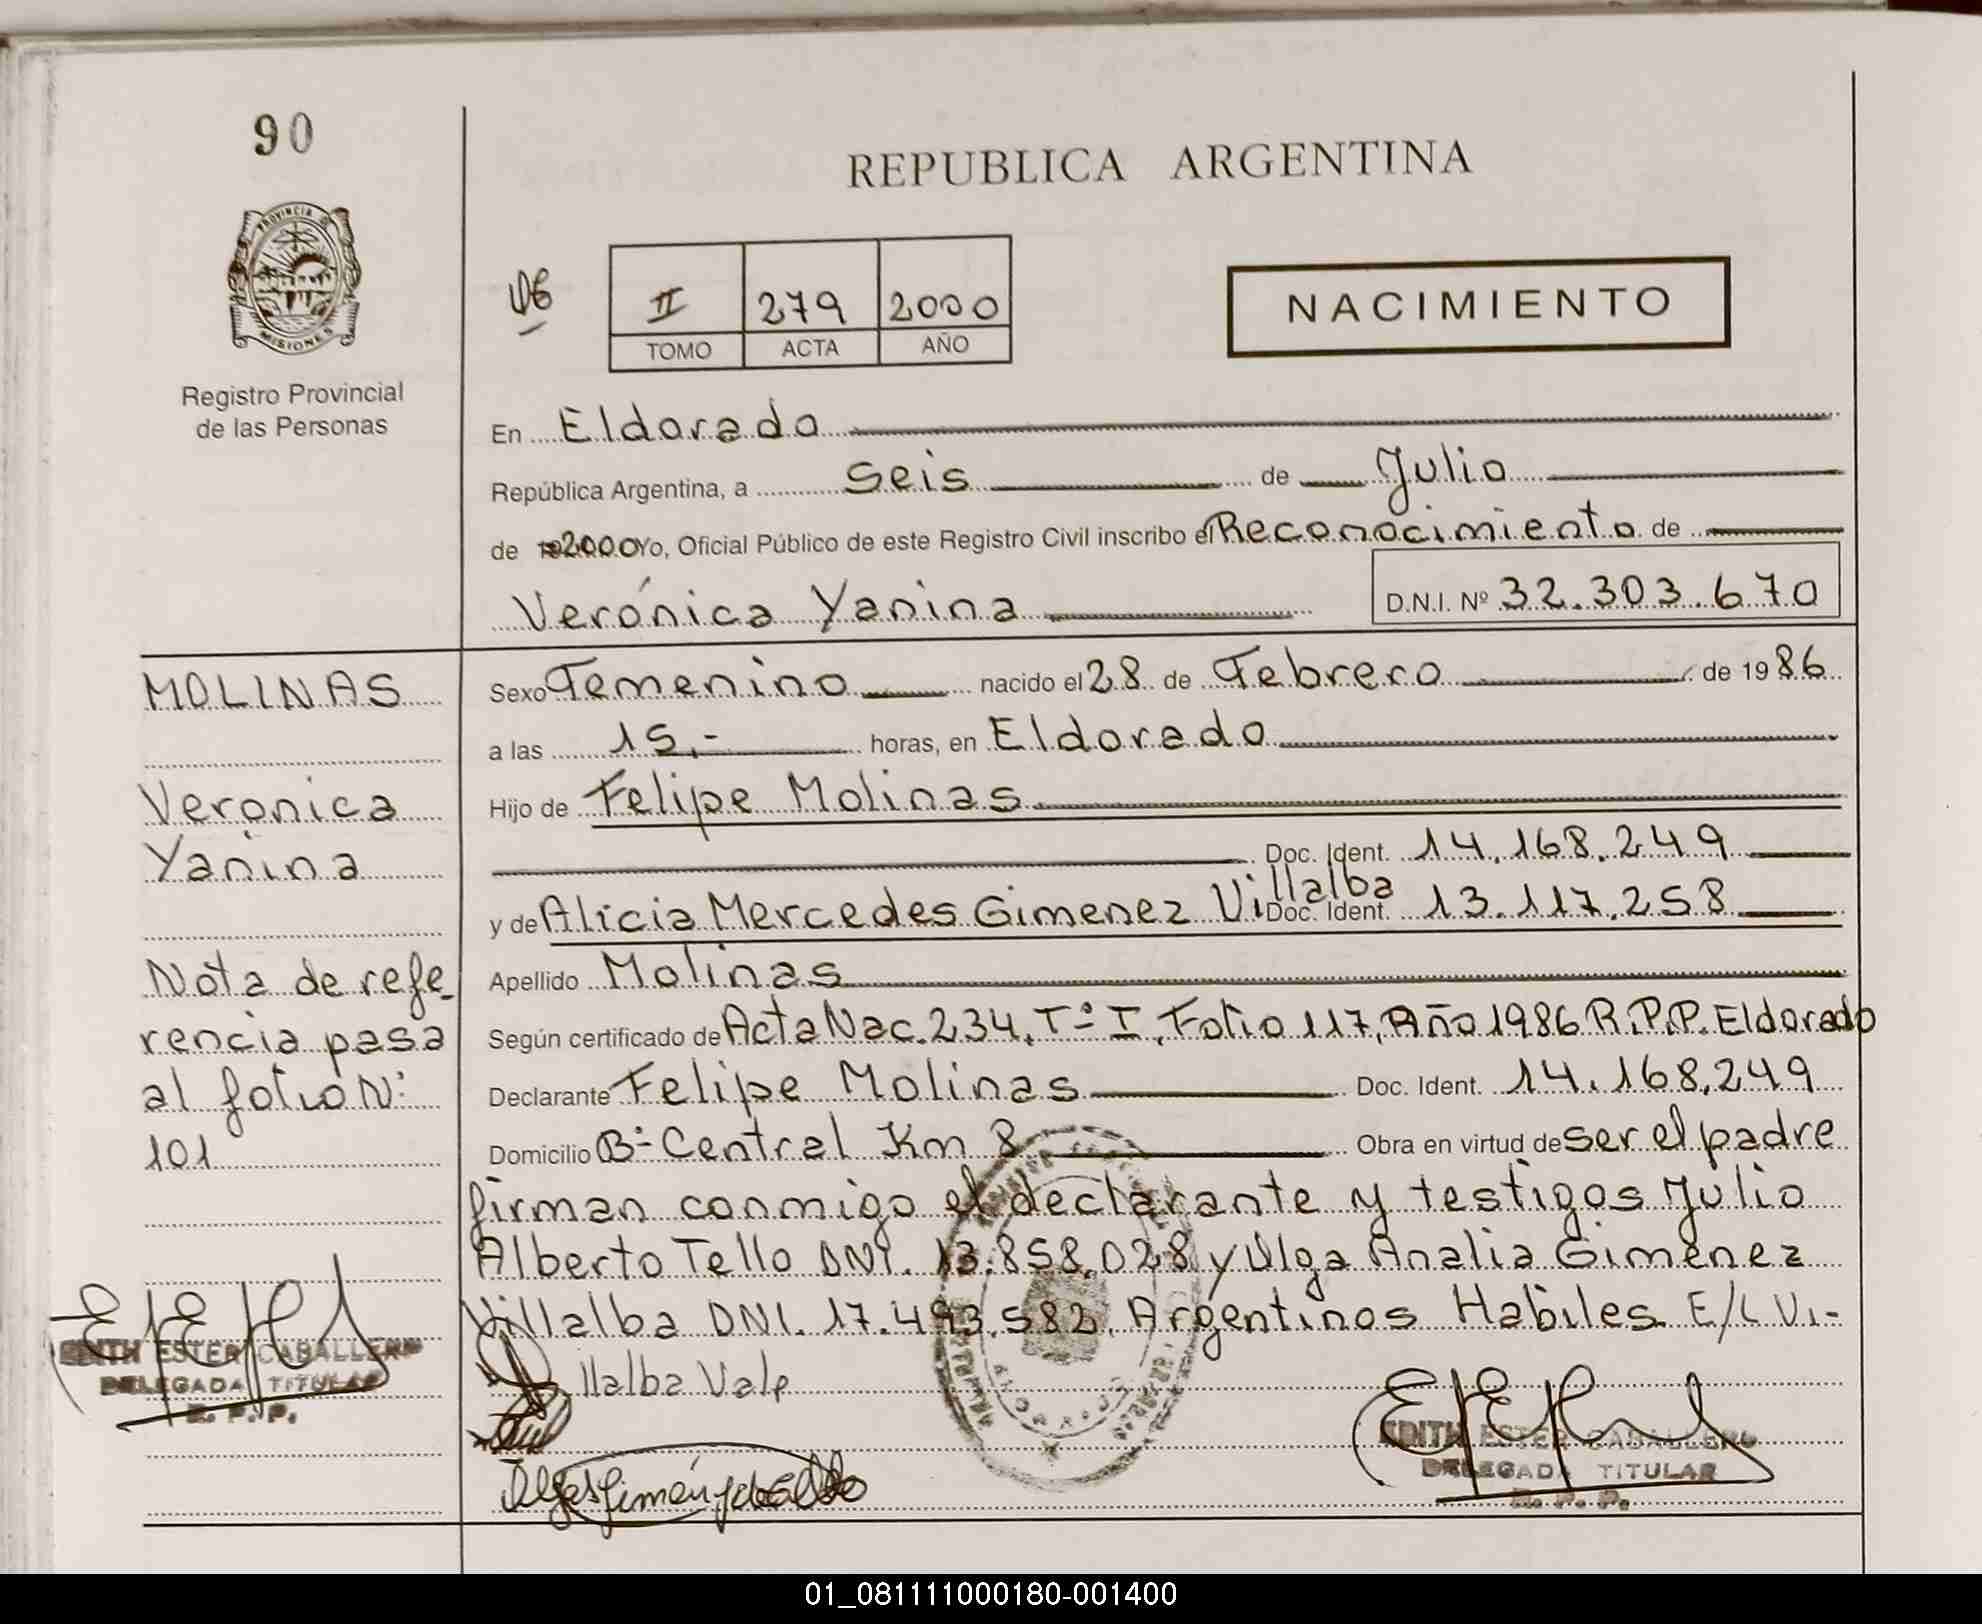 90
REPUBLICA ARGENTINA
PROVINCIA DE
MISIONES
II 279 2000
TOMO ACTA AÑO
NACIMIENTO
Registro Provincial
de las Personas
En Eldorado
República Argentina, a seis de Julio
de 2000 Yo, Oficial Público de este Registro Civil inscribo el Reconocimiento de
Verónica Yanina D.N.I. Nº 32.303.670
MOLINAS
Verónica
Yanina
Nota de refe_
rencia pasa
al folio N:
101
Sexo Femenino nacido el 28 de Febrero de 1986
a las 15.- horas, en Eldorado
Hijo de Felipe Molinas
Doc. Ident. 14.168.249
y de Alicia Mercedes Gimenez Villalba Doc. Ident. 13.117.258
Apellido Molinas
Según certificado de Acta Nac. 234, Tº I, Folio 117, Año 1986 R.P.P. Eldorado
Declarante Felipe Molinas Doc. Ident. 14.168.249
Domicilio Bº Central Km 8 Obra en virtud de ser el padre
firman conmigo el declarante y testigos Julio
Alberto Tello DNI. 13.858.028 y Olga Analia Gimenez
Villalba DNI. 17.493.582, Argentinos Habiles. E/L Vi-
llalba Vale
EDITH ESTER CABALLERO
DELEGADA TITULAR
R. P. P.
EDITH ESTER CABALLERO
DELEGADA TITULAR
R. P. P.
01_081111000180-001400